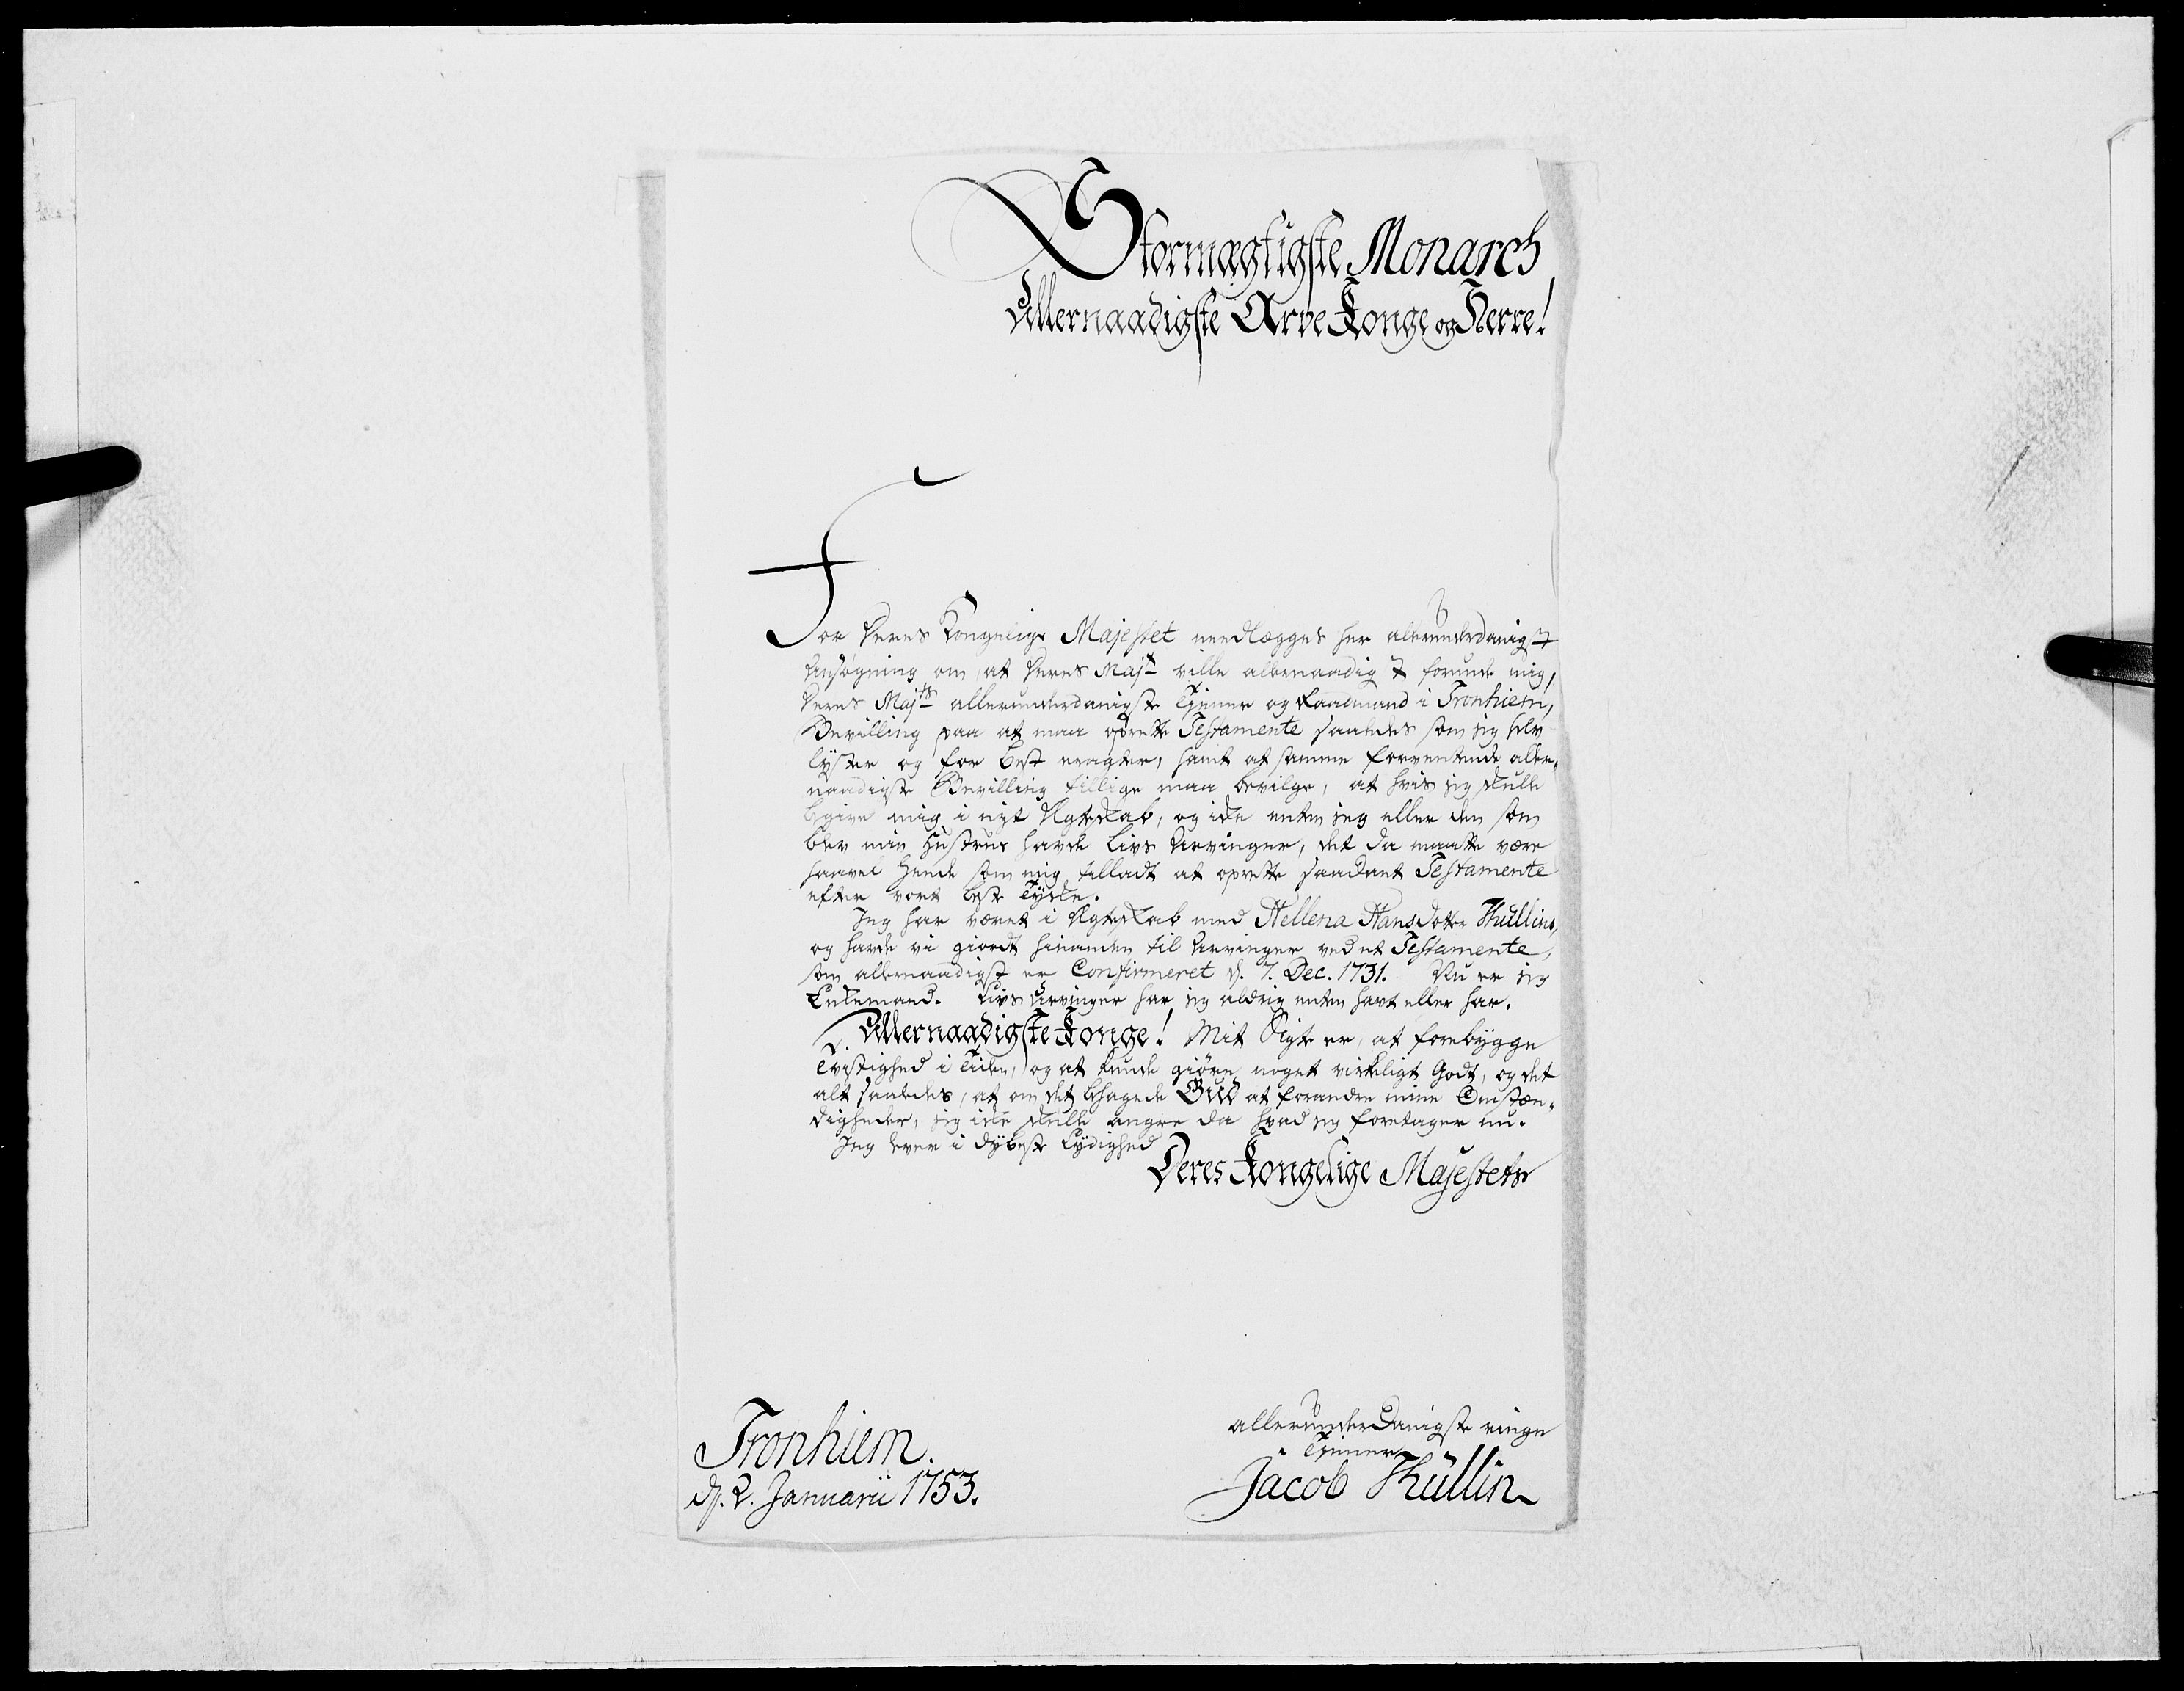 Stormægtigste Monarch
Allernaadigste Arve Konge og Herre!
For Deres Kongelige Majestet needlægges her allerunderdanigst
Ansøgning om, at Deres Majt ville allernaadigst forunde mig,
Deres Majts allerunderdanigste Tiener og Raadmand i Tronhiem,
Bevilling paa at maa oprette Testamente saaledes som jeg selv
lyster og for best eragter, samt at samme forventende aller-
naadigste Bevilling tillige maa bevilge, at hvis jeg skulle
begive mig i nyt Ægteskab, og icke enten jeg eller den som
blev min Hustrue havde Livs Arvinger, det da maatte være
saavel Hende som mig tilladt at oprette saadant Testamente
efter vort beste Tycke.
Jeg har været i Ægteskab med Hellena Hansdotter Thüllins,
og havde vi giordt hinanden til Arvinger ved et Testamente,
som allernaadigst er Confirmeret d. 7. Dec. 1731. Nu er jeg
Enkemand. Livs Arvinger har jeg aldrig enten havt eller har.
Allernaadigste Konge! Mit Sigte er, at forebygge
Tvistighed i Tiden, og at kunde giøre noget virkeligt Godt, og det
alt saaledes, at om det behagede Gud at forandre mine Omstæn-
digheder, jeg icke skulle angre da hvad jeg foretager nu.
Jeg lever i dybeste Lydighed
Deres Kongelige Majestets
allerunderdanigste ringe
Tiener
Tronhiem.
d. 2. Januarii 1753.
Jacob Thüllin